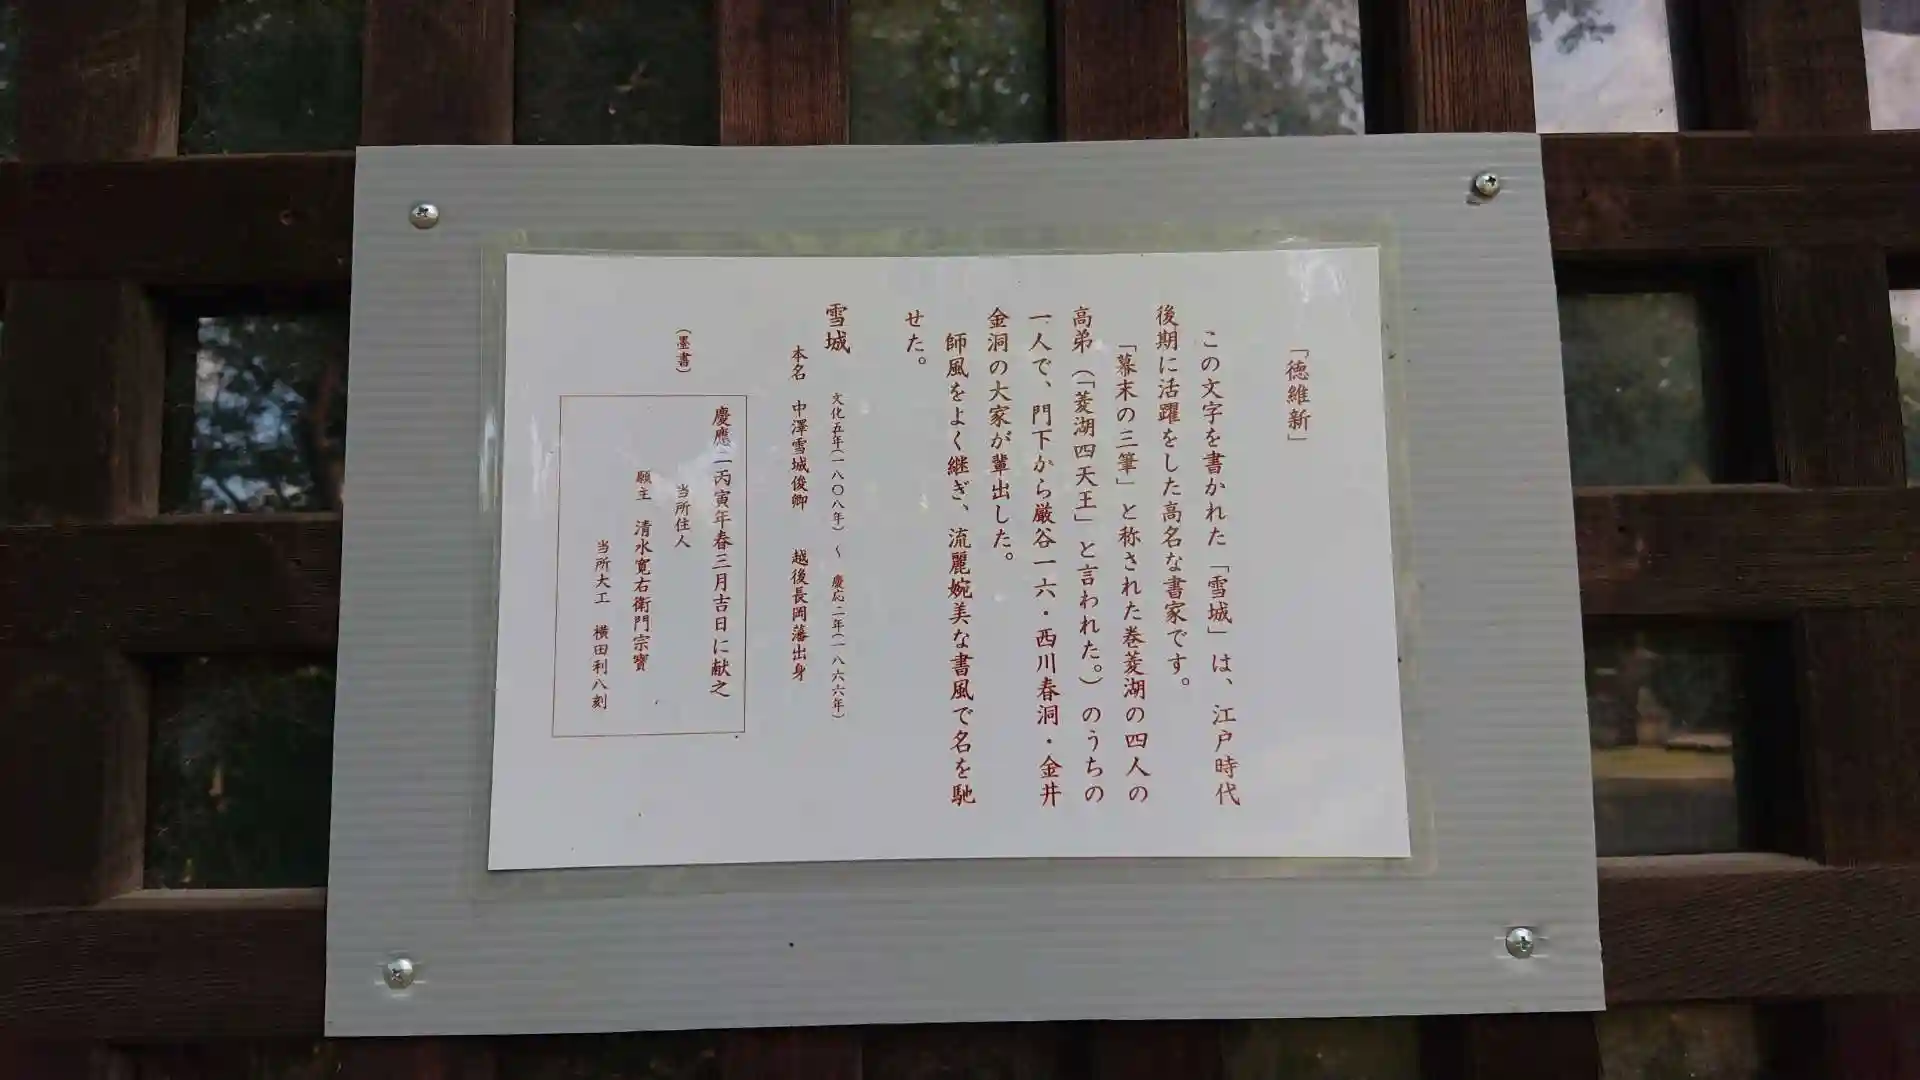 「徳維新」
この文字を書かれた「雪城」は、江戸時代
後期に活躍をした高名な書家です。
「幕末の三筆」と称された巻菱湖の四人の
高弟（「菱湖四天王」と言われた。）のうちの
一人で、門下から厳谷一六・西川春洞・金井
金洞の大家が輩出した。
師風をよく継ぎ、流麗婉美な書風で名を馳
せた。
雪城 文化五年（一八〇八年）～ 慶応二年（一八六六年）
本名 中澤雪城俊卿 越後長岡藩出身
（墨書）
慶應二丙寅年春三月吉日に献之
当所住人
願主 清水寛右衛門宗寶
当所大工 横田利八刻